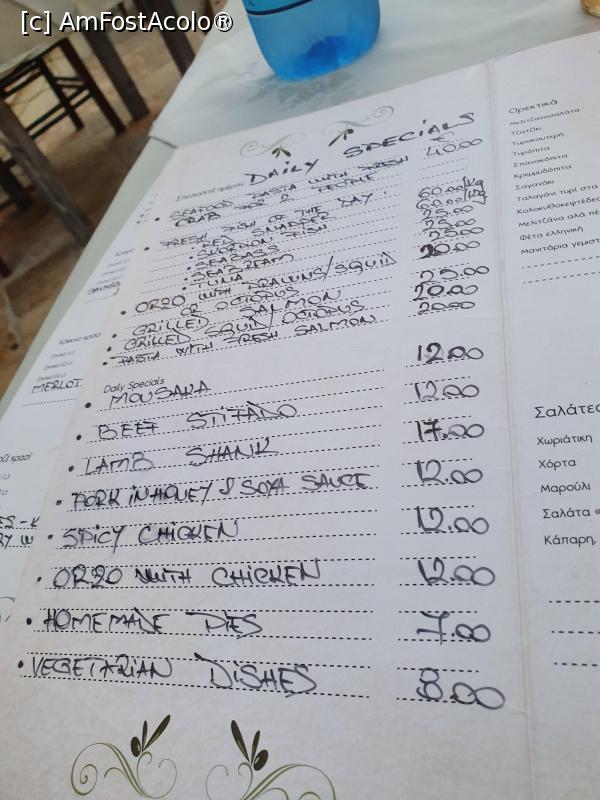 [c] AmFostAcolo®
DAILY SPECIALS
€
• SEAFOOD PASTA WITH FRESH 40.00
CRAB FOR 2 PEOPLE
• FRESH FISH OF THE DAY:
• RED SNAPPER 60.00/kg
60.00/kg
• SEABASS 25.00
• SEA BREAM
• TUNA
• ORZO WITH PRAWNS/SQUID 20.00
OR OCTOPUS
• GRILLED SALMON 25.00
• GRILLED SQUID/OCTOPUS 20.00
• PASTA WITH FRESH SALMON 20.00
Daily Specials
• MOUSAKA 12.00
• BEEF STIFADO 12.00
• LAMB SHANK 17.00
• PORK IN HONEY & SOYA SAUCE 12.00
• SPICY CHICKEN 12.00
• ORZO WITH CHICKEN 12.00
• HOMEMADE PIES 7.00
• VEGETARIAN DISHES 8.00
Ορεκτικά
Μελιτζανοσαλάτα
Τζατζίκι
Τυροκαυτερή
Τυρόπιτα
Σπανακόπιτα
Κρεμμυδόπιτα
Σαγανάκι
Ταλαγάνι τυρί στα
Κολοκυθοκεφτέδες
Μελιτζάνα αλά
Φέτα ελληνική
Μανιτάρια γεμιστ
Σαλάτες
Χωριάτικη
Χόρτα
Μαρούλι
Σαλάτα
Κάπαρη,
MERLOT